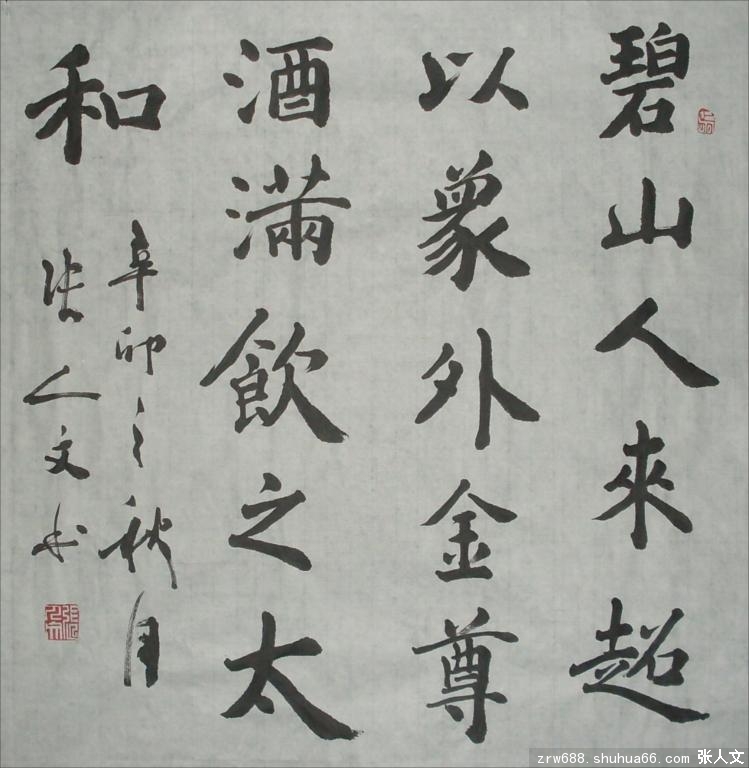 碧山人來超
以象外金尊
酒滿飲之太
和
辛卯之秋月
张人文书
zrw688.shuhua66.com 张人文